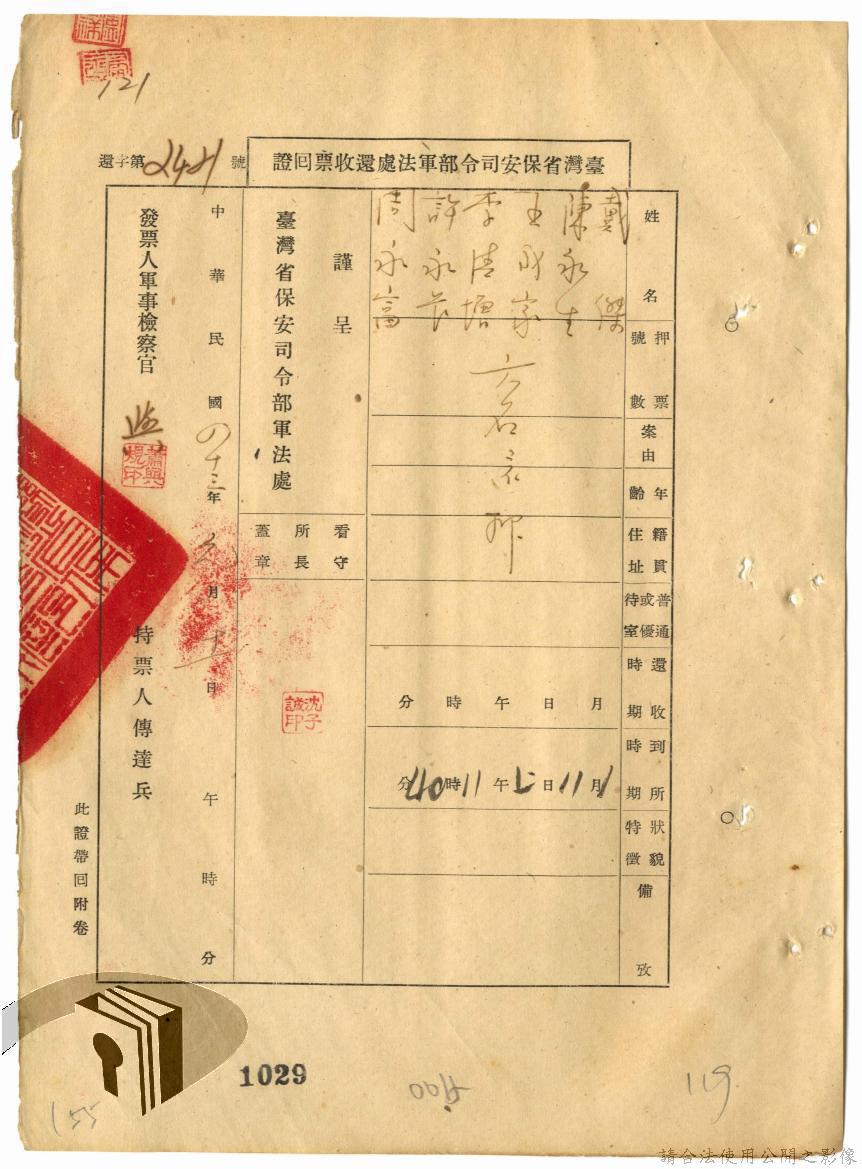 121
臺灣省保安司令部軍法處還收票回證
還字第2421號
姓名
戴傑
陳永生
王再家
李清增
許永長
周永富
押票號數
六名京押
案由
年齡
籍貫住址
普通或優待室
還收時期
月 日 午 時 分
到所時期
1月11日上午11時40分
狀貌特徵
備攷
謹呈
臺灣省保安司令部軍法處
看守所長蓋章
沈子誠印
中華民國四十三年元月十一日 午 時 分
發票人軍事檢察官
蕭與規印
持票人傳達兵
此證帶回附卷
1029
155
119
請合法使用公開之影像